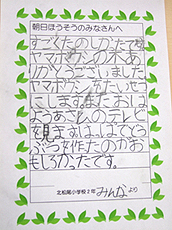 朝日ほうそうのみなさんへ
すごくたのしかたです
ヤマボウシの木あ
りがとうございました。
ヤマボウシをたいせつ
にします。またおは
ようあさのテレビ
を見ますは、はてどう
ぶつ作たのかお
もしろかたです。
北松尾小学校2年 みんなより